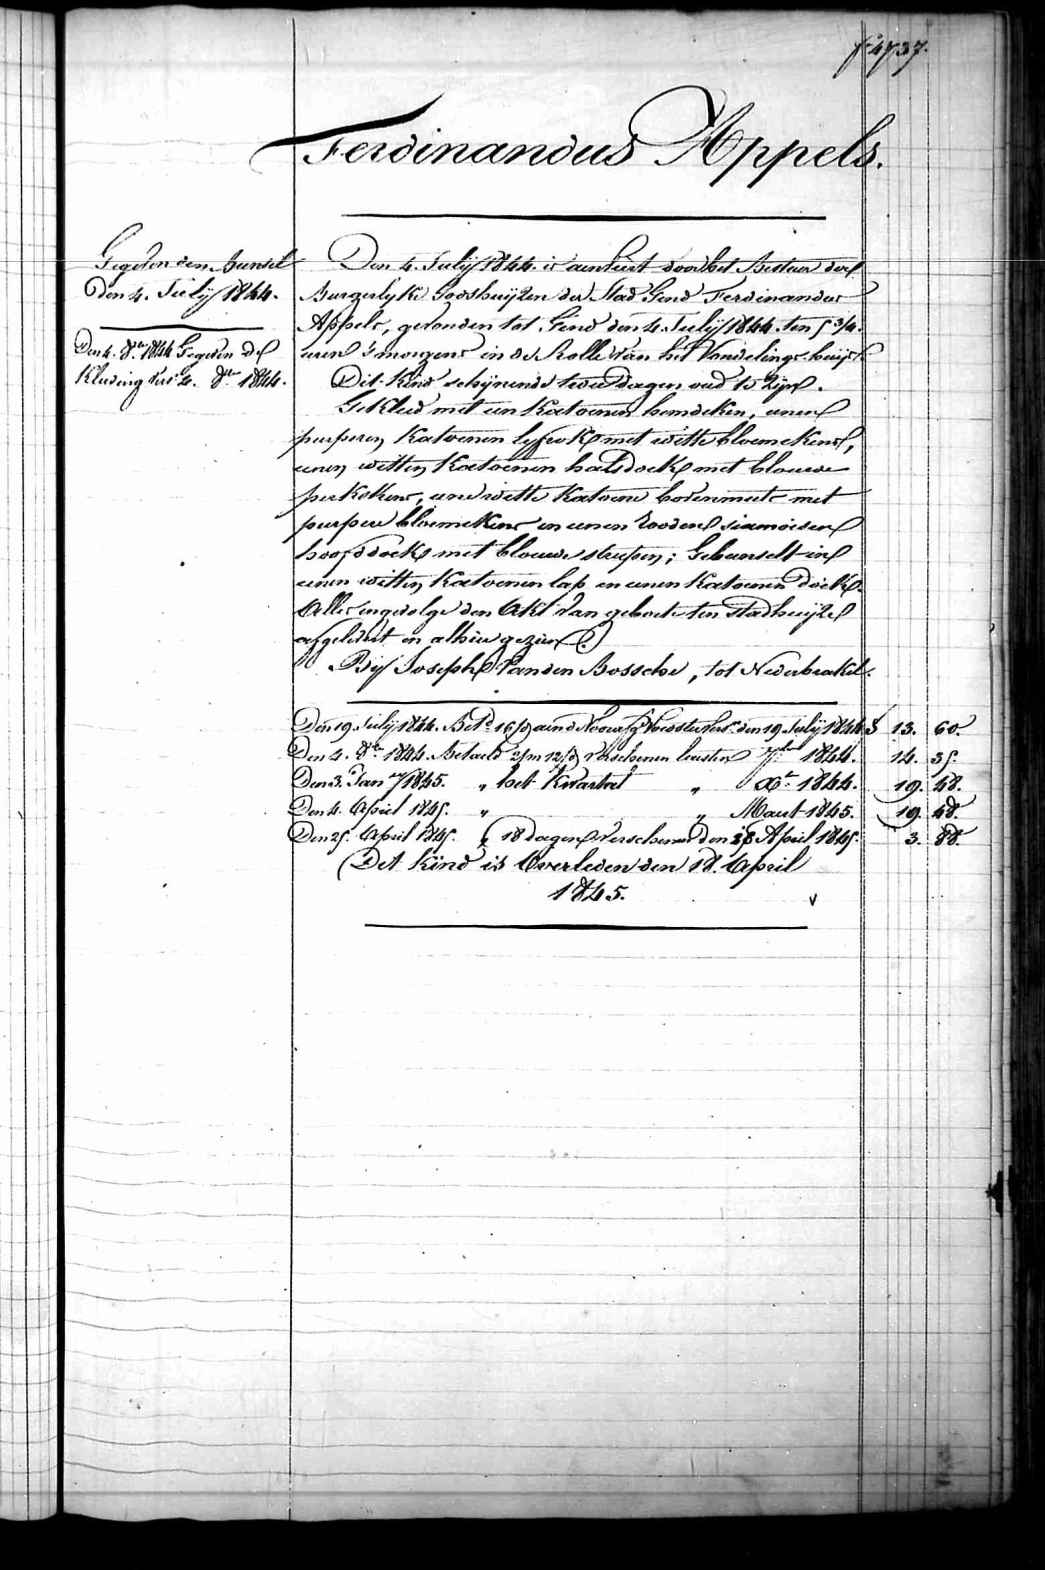 f° 4737.
Ferdinandus Appels.
Gegeven den Bunsel
Den 4. Julÿ 1844.
Den 4. 8bre 1844 Gegeven de
Kleeding Vers. 4. 8bre 1844.
Den 4. Julÿ 1844. is aenveert door het Bestuer der
Burgerlyke Godshuÿzen der Stad Gend Ferdinandus
Appels, gevonden tot Gend den 4. Julÿ 1844 ten 5 3/4.
uren 's morgens in de Rolle van het Vondelings-huÿs.
Dit Kind schÿnende twee dagen oud te Zÿn.
Gekleed met een Katoenen hemdeken, eenen
purperen Katoenen lyfrok met witte bloemekens,
eenen witten Katoenen halsdoek met blauwe
perkskens, eene witte Katoene bovenmuts met
purpere bloemekens en eenen Rooden siamoisen
hoofddoek met blauwe streepen; Gebunselt in
eenen witten Katoenen lap en eenen Katoenen doek.
Alles ingevolge den Akt van geboorte ten stadhuÿze
afgeleverd en alhier gezien
Bÿ Joseph Vanden Bossche, tot Nederbrakel.
Den 19. Julÿ 1844. Betd 16 f aen de Voedster Vers. den 19 Julÿ 1844 13. 60.
Den 4. 8bre 1844. Betaeld 2/m 12/d verschenen leesten 7bre 1844. 14. 35.
Den 3. Jany 1845. " het Kwartael " Xbr 1844. 19. 48.
Den 4. April 1845. " " Maert 1845. 19. 48.
Den 25. April 1845. " 18 dagen Verschenen den 18 April 1845. 3. 88.
(Det Kind is Overleden den 18. April
1845. v